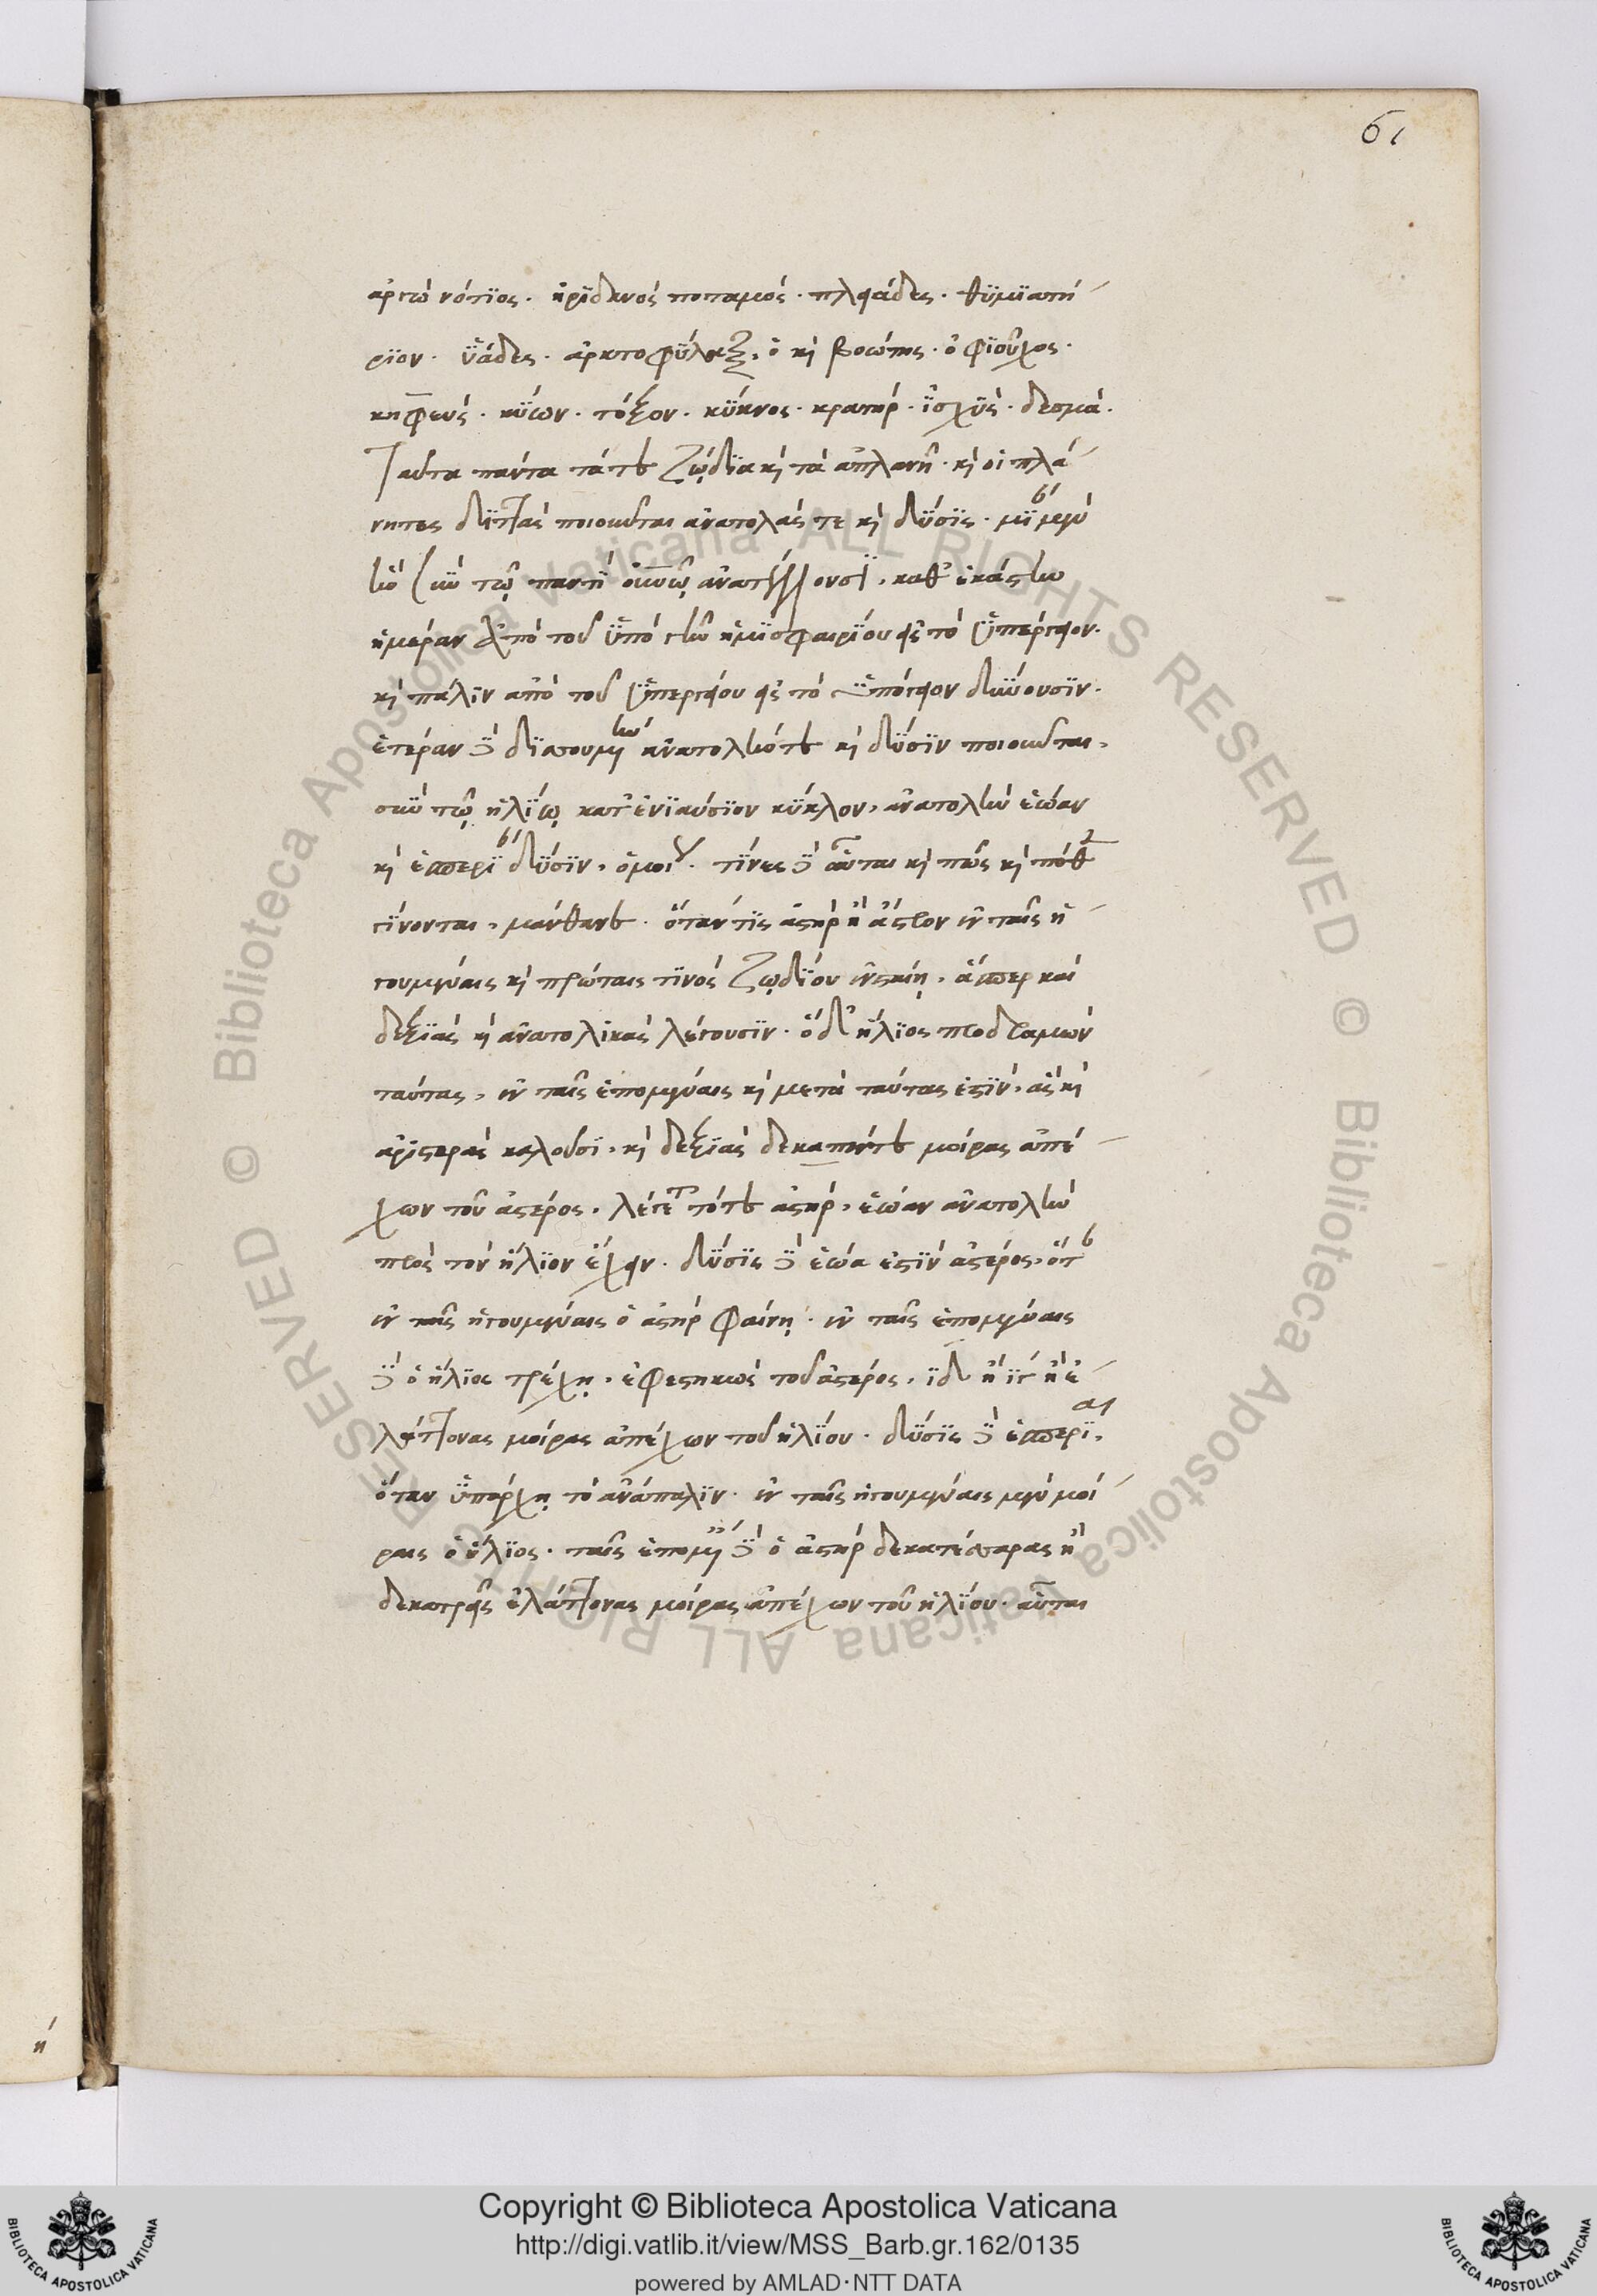 61
ἀργὼ νότϊος · ἠρϊδανός ποταμός · πληάδες · θϋμϊατή
ρϊον · ὑάδες · ἀρκτοφύλαξ, ὁ καὶ βοώτης · ὀφϊοῦχος ·
κηφεύς · κύων · τόξον · κύκνος · κρατὴρ · ἰσχῦς · δεσμά ·
Ταῦτα πάντα τά τε ζῴδϊα καὶ τὰ ἀπλανῆ · καὶ οἱ πλά
νητες διττὰς ποιοῦνται ἀνατολάς τε καὶ δύσϊς · μίαν μὲν
σὺν τῷ παντὶ ἀνατέλλουσϊ, καθ' ἑκάστην
ἡμέραν ἀπὸ τοῦ ὑπὸ γῆν ἡμϊσφαιρίου εἰς τὸ ὑπέργειον ·
καὶ πάλϊν ἀπὸ τοῦ ὑπεργείου εἰς τὸ ὑπόγειον δύνουσϊν ·
ἑτέραν δὲ ἀνατολήν τε καὶ δύσϊν ποιοῦνται,
σὺν τῷ ἡλίῳ κατ' ἐνϊαύσϊον κύκλον, ἀνατολὴν ἑῴαν
καὶ ἑσπερί δύσϊν, ὁμοί · τίνες δὲ αὗται καὶ πῶς καὶ πόθεν
γίνονται, μάνθανε · ὅταν τϊς ἀστὴρ ἢ ἄστρον ἐν ταῖς ἡ
γουμέναις καὶ πρώταις τϊνὸς ζῳδίου ἐνσταίη, ἅσπερ καὶ
δεξϊὰς καὶ ἀνατολϊκὰς λέγουσϊν · ὁ δ' ἥλϊος προδραμὼν
ταύτας, ἐν ταῖς ἑπομέναις καὶ μετὰ ταύτας ἐστϊν, ἃς καὶ
ἀρϊστερὰς καλοῦσϊ, καὶ δεξϊὰς δεκαπέντε μοίρας ἀπέ
χων τοῦ ἀστέρος, λέγεται τότε ἀστὴρ, ἑῴαν ἀνατολὴν
πρὸς τὸν ἥλϊον ἔχειν · δύσϊς δὲ ἑῴα ἐστϊν ἀστέρος, ὅτε
ἐν ταῖς ἡγουμέναις ὁ ἀστὴρ φαίνῃ · ἐν ταῖς ἑπομέναις
δὲ ὁ ἥλϊος τρέχῃ, ἐφεστηκὼς τοῦ ἀστέρος, ϊδ ἢ ϊγ ἢ ἐ
λάττονας μοίρας ἀπέχων τοῦ ἡλίου · δύσϊς δὲ ἑσπερία,
ὅταν ὑπάρχῃ τὸ ἀνάπαλϊν · ἐν ταῖς ἡγουμέναις μὲν μοί
ραις ὁ ἥλϊος · ταῖς ἑπομέναις δὲ ὁ ἀστὴρ δεκατέσσαρας ἢ
δεκατρεῖς ἐλάττονας μοίρας ἀπέχων τοῦ ἡλίου · αὗται
ή
© Biblioteca Apostolica Vaticana ALL RIGHTS RESERVED
© Biblioteca Apostolica Vaticana ALL RIGHTS RESERVED
Copyright © Biblioteca Apostolica Vaticana
http://digi.vatlib.it/view/MSS_Barb.gr.162/0135
powered by AMLAD·NTT DATA
BIBLIOTECA APOSTOLICA VATICANA
BIBLIOTECA APOSTOLICA VATICANA